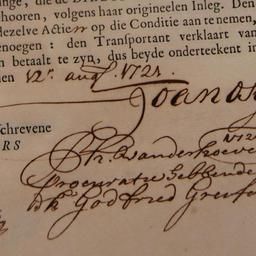 inge, die de
hooren, volgens haar origineelen Inleg. Den
dezelve Actien op die Conditie aan te nemen,
enoegen: den Transportant verklaart van
n betaalt te zyn, dus beyde onderteekent in
en 12e. augt. 1721.
Joan
schrevene
ERS
Ph. Vanderhoeve
Procuratie hebbende
Godfried